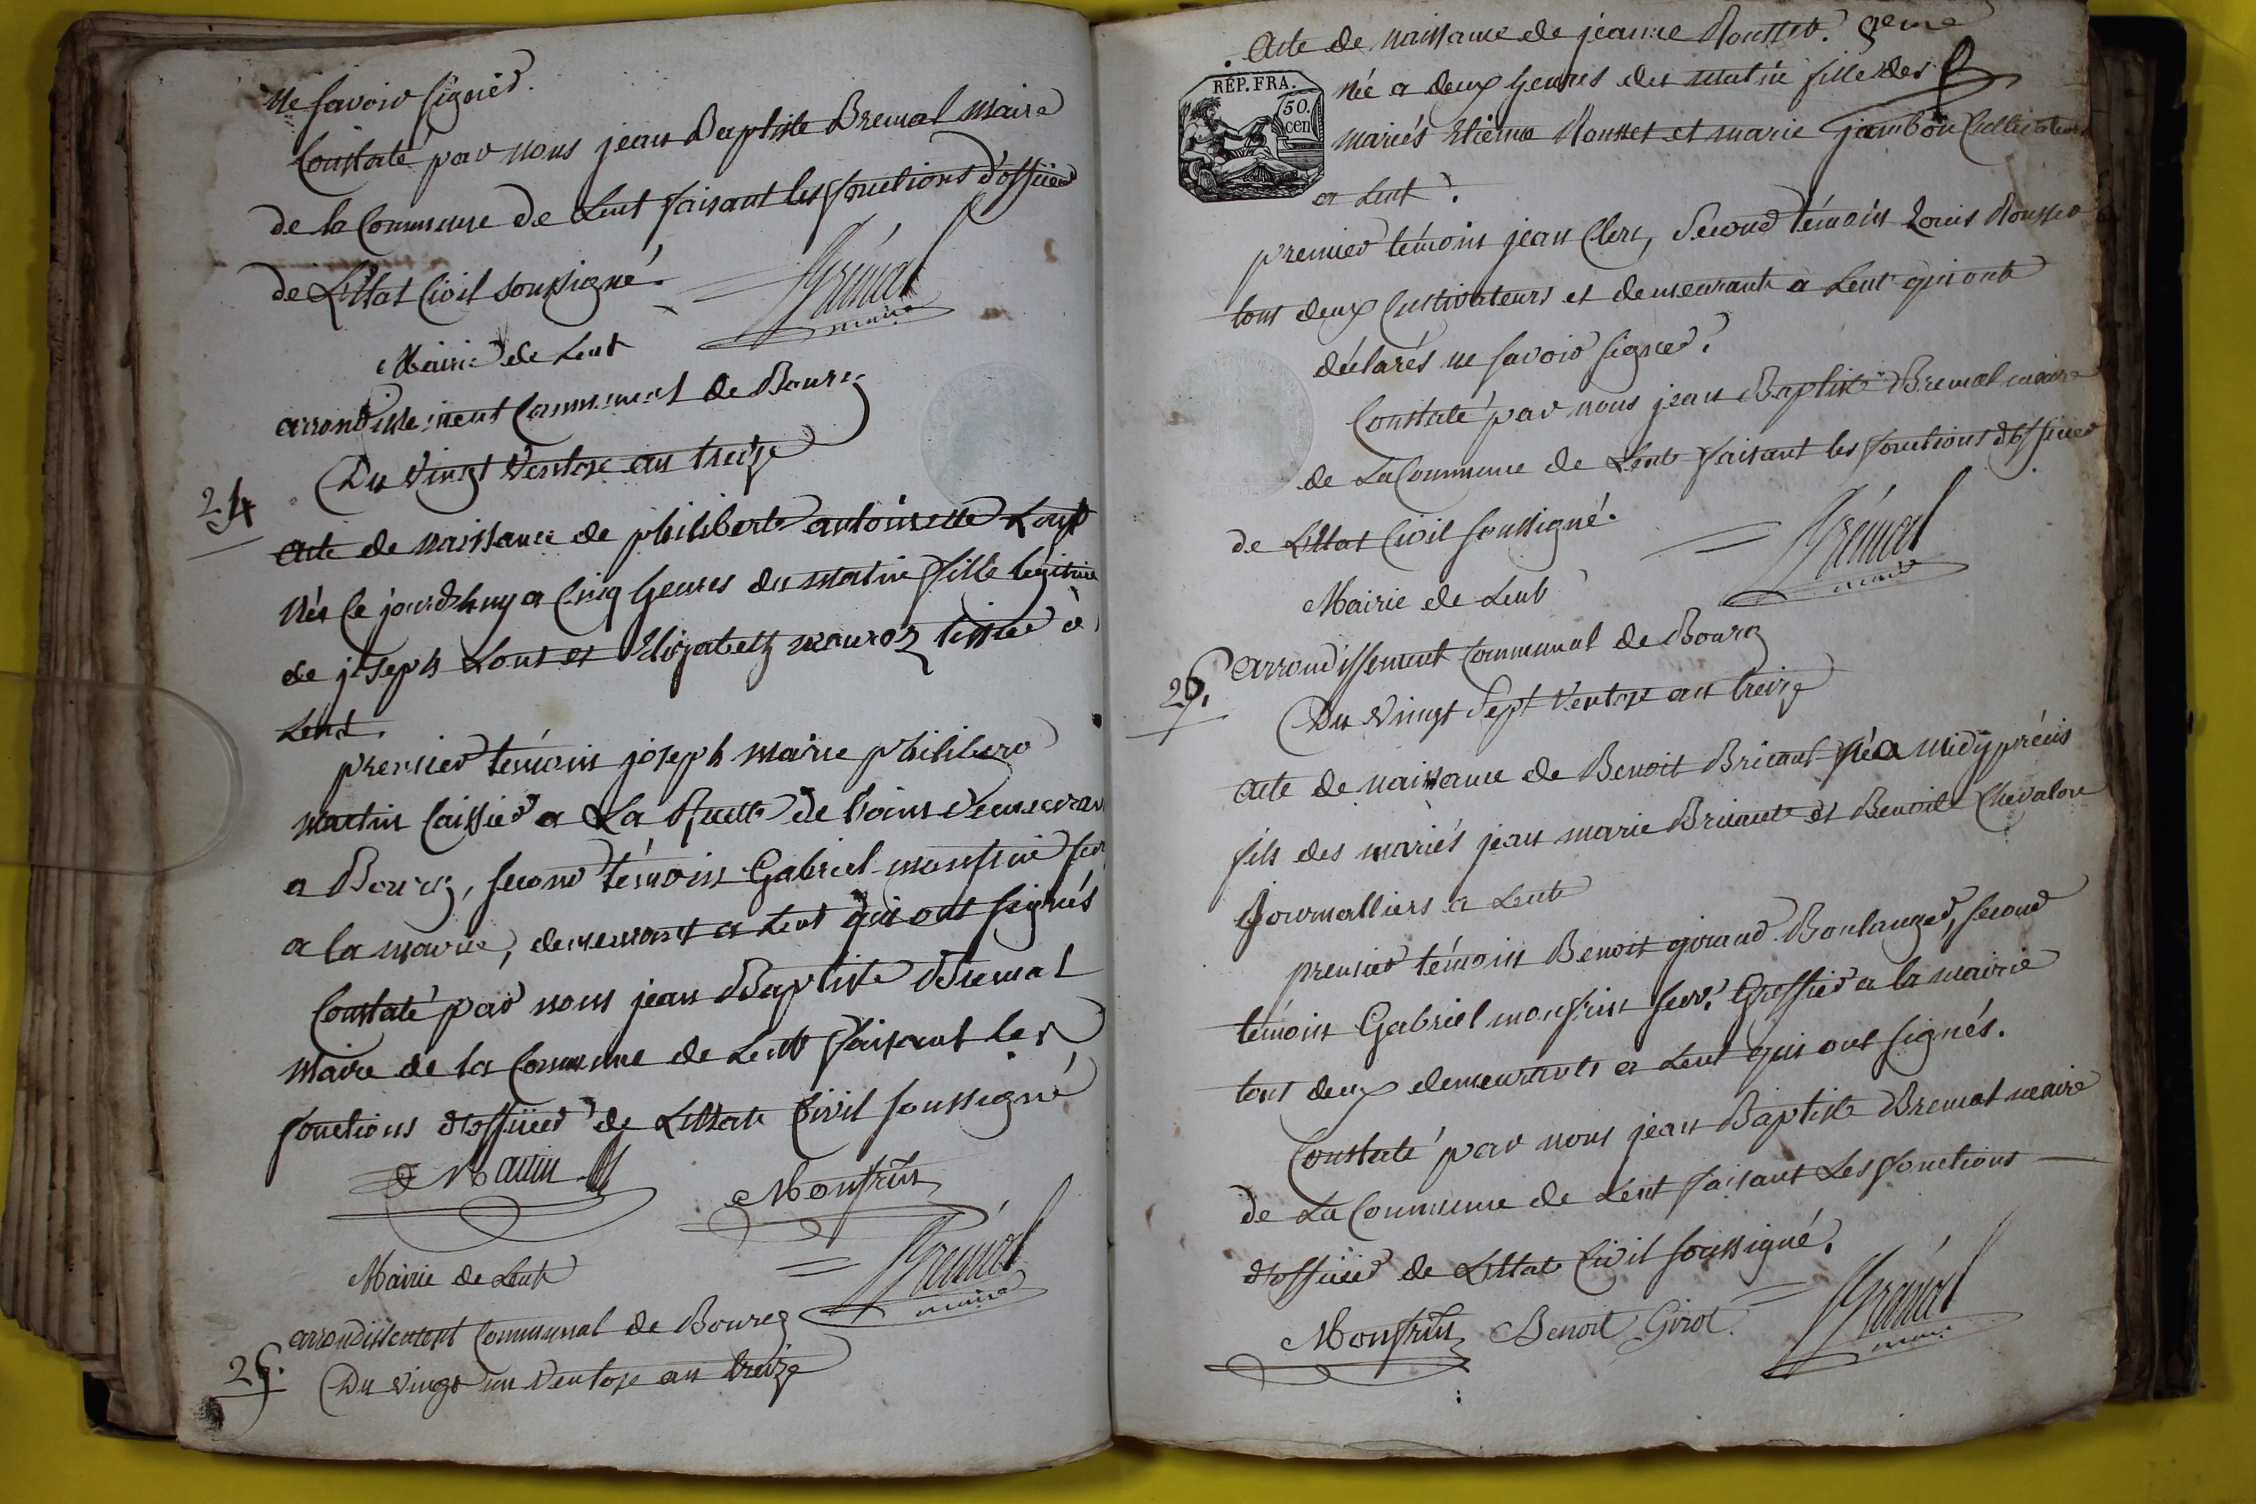 ne savoir signer.
Constaté par nous jean Baptiste Bremal maire
de la Commune de Lent faisant les fonctions d'officier
de L'Etat Civil soussigné.
Brémal
maire
Mairie de Lent
arrondissement Communal de Bourg
Du vingt Ventose an treize
24
Acte de naissance de philiberte antoinette Loup
née Ce jourdhuy a Cinq heures du matin fille legitime
de joseph Loup et Elizabeth tissier à
Lent.
premier témoin joseph marie philibert
martin Caissier a La Recette de L'ain demeurant
a Bourg, second témoin Gabriel monfrin
a la mairie, demeurant a Lent qui ont signés
Constaté par nous jean Baptiste Bremal
maire de la Commune de Lent faisant les
fonctions d'officier de L'Etat Civil soussigné
Martin
Monfrin
Brémal
maire
Mairie de Lent
arrondissement Communal de Bourg
25.
Du vingt un Ventose an treize
Acte de naissance de jeanne Rousset.
RÉP. FRA.
50.
cen
née a deux heures du matin fille des
mariés Etienne Rousset et marie jambon Cultivateurs
a Lent.
premier témoin jean Clerc, second témoin Louis Rousset
tous deux Cultivateurs et demeurants a Lent qui ont
déclarés ne savoir signer.
Constaté par nous jean Baptiste Bremal maire
de La Commune de Lent faisant les fonctions d'officier
de L'Etat Civil soussigné.
Brémal
maire
Mairie de Lent
arrondissement Communal de Bourg
26.
Du vingt Sept Ventose an treize
Acte de naissance de Benoit Bricaut né a midy précis
fils des mariés jean marie Bricaut et Benoite Chevalon
journalliers a Lent
premier témoin Benoit giraud Boulanger, second
témoin Gabriel monfrin secr. Greffier a la mairie
tous deux demeurants a Lent qui ont signés.
Constaté par nous jean Baptiste Bremal maire
de La Commune de Lent faisant Les fonctions
d'officier de L'Etat Civil soussigné.
Monfrin Benoit Girot. Brémal
maire